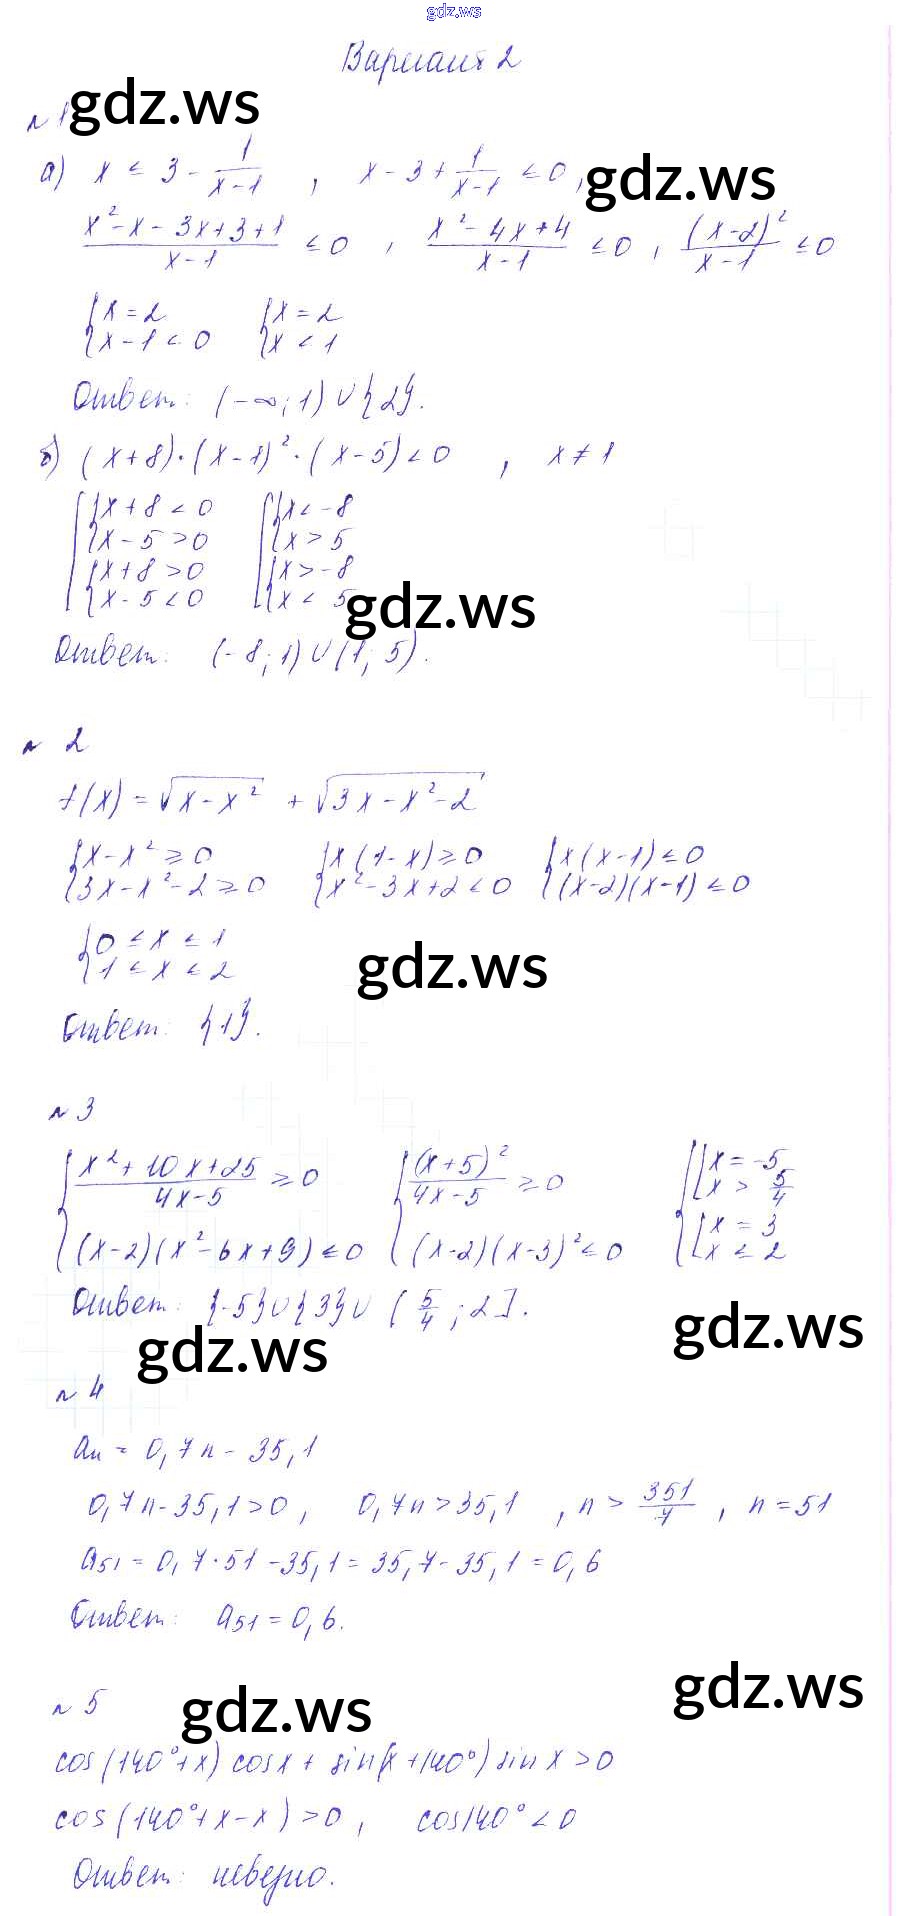 gdz.ws
Вариант 2
№ 1
gdz.ws
а) x ≤ 3 - 1/(x-1) , x - 3 + 1/(x-1) ≤ 0,
gdz.ws
(x² - x - 3x + 3 + 1)/(x-1) ≤ 0 , (x² - 4x + 4)/(x-1) ≤ 0 , (x-2)²/(x-1) ≤ 0
{x = 2 {x = 2
{x - 1 < 0 {x < 1
Ответ: (-∞; 1) ∪ {2}.
б) (x+8)·(x-1)²·(x-5) < 0 , x ≠ 1
[{x + 8 < 0 [{x < -8
{x - 5 > 0 {x > 5
{x + 8 > 0 {x > -8
{x - 5 < 0 {x < 5
gdz.ws
Ответ: (-8; 1) ∪ (1; 5).
№ 2
f(x) = √(x - x²) + √(3x - x² - 2)
{x - x² ≥ 0 {x(1-x) ≥ 0 {x(x-1) ≤ 0
{3x - x² - 2 ≥ 0 {x² - 3x + 2 < 0 {(x-2)(x-1) ≤ 0
{0 ≤ x ≤ 1
{1 ≤ x ≤ 2
gdz.ws
Ответ: {1}.
№ 3
{(x² + 10x + 25)/(4x-5) ≥ 0 {(x+5)²/(4x-5) ≥ 0 {[x = -5
[x > 5/4
{(x-2)(x² - 6x + 9) ≤ 0 {(x-2)(x-3)² ≤ 0 {[x = 3
[x ≤ 2
Ответ: {-5} ∪ {3} ∪ [5/4; 2].
gdz.ws
gdz.ws
№ 4
aₙ = 0,7n - 35,1
0,7n - 35,1 > 0 , 0,7n > 35,1 , n > 351/7 , n = 51
a₅₁ = 0,7·51 - 35,1 = 35,7 - 35,1 = 0,6
Ответ: a₅₁ = 0,6.
gdz.ws
gdz.ws
№ 5
cos(140°+x) cosx + sin(x+140°) sin x > 0
cos(140°+x-x) > 0 , cos140° < 0
Ответ: неверно.